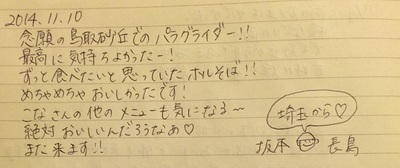 2014.11.10
念願の鳥取砂丘でのパラグライダー!!
最高に気持ちよかったー!
ずっと食べたいと思っていたホルそば!!
めちゃめちゃおいしかったです!
こなさんの他のメニューも気になる~
絶対おいしいんだろうなあ♡
また来ます!!
埼玉から♡
坂本 長島